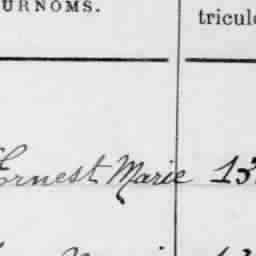 URNOMS.
tricul
Ernest Marie 13